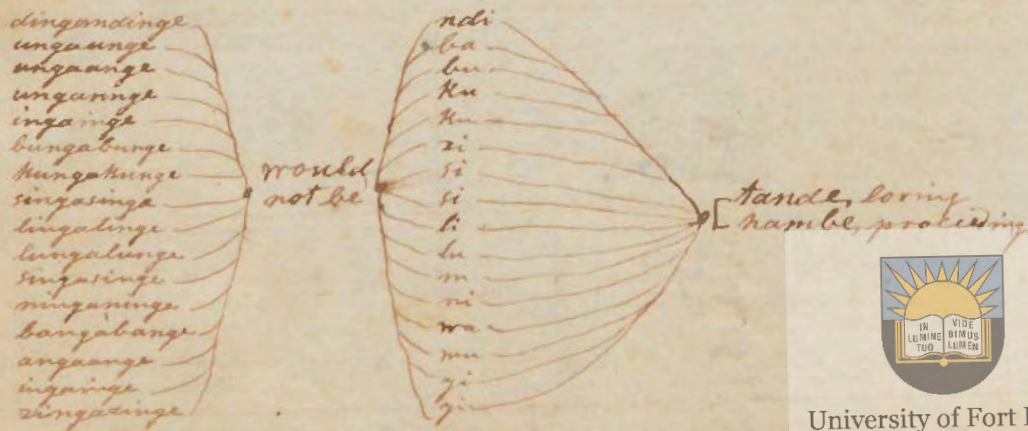 dingandinge
ungaunge
ungaange
ungaringe
ingainge
bungabunge
kungakunge
singasinge
lingalinge
lungalunge
singasinge
ninganinge
bangabange
angaange
zingazinge
would
not be
ndi
ba
bu
ku
ku
zi
si
si
li
lu
m
ni
wa
mu
tande, loving
hambe, proceeding
IN
LUMINE
TUO
VIDE
BIMUS
LUMEN
University of Fort